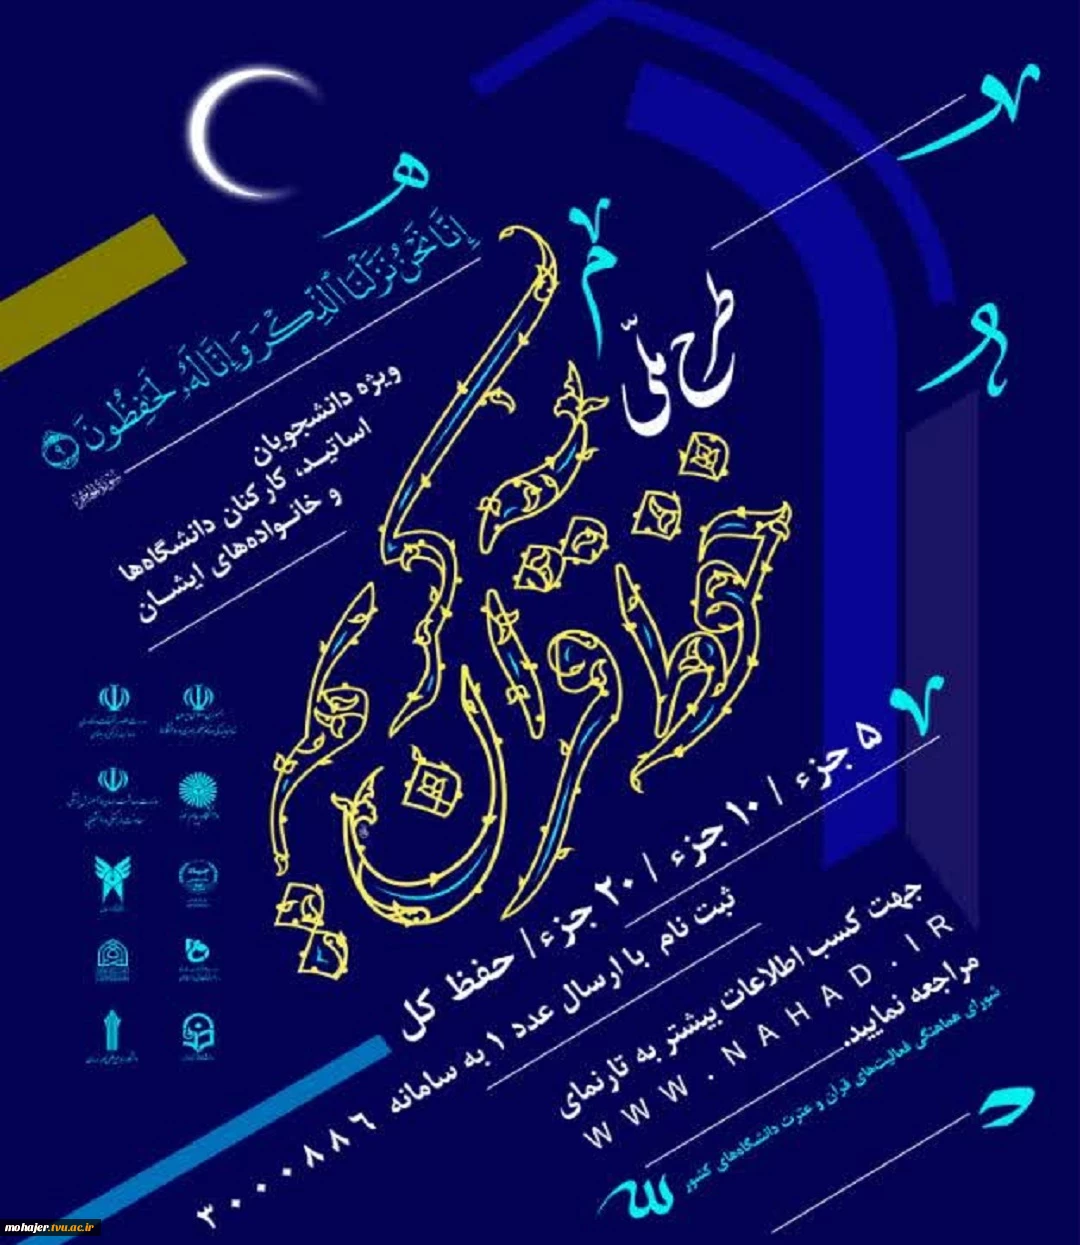 إِنَّا نَحْنُ نَزَّلْنَا ٱلذِّكْرَ وَإِنَّا لَهُۥ لَحَٰفِظُونَ ۹
ویژه دانشجویان
اساتید، کارکنان دانشگاه‌ها
و خانواده‌های ایشان
طرح ملّی
حفظ قرآن کریم
۵ جزء / ۱۰ جزء / ۲۰ جزء / حفظ کل
ثبت نام با ارسال عدد ۱ به سامانه ۳۰۰۰۸۸۶
جهت کسب اطلاعات بیشتر به تارنمای
WWW.NAHAD.IR
مراجعه نمایید.
شورای هماهنگی فعالیت‌های قرآن و عترت دانشگاه‌های کشور
mohajer.tvu.ac.ir